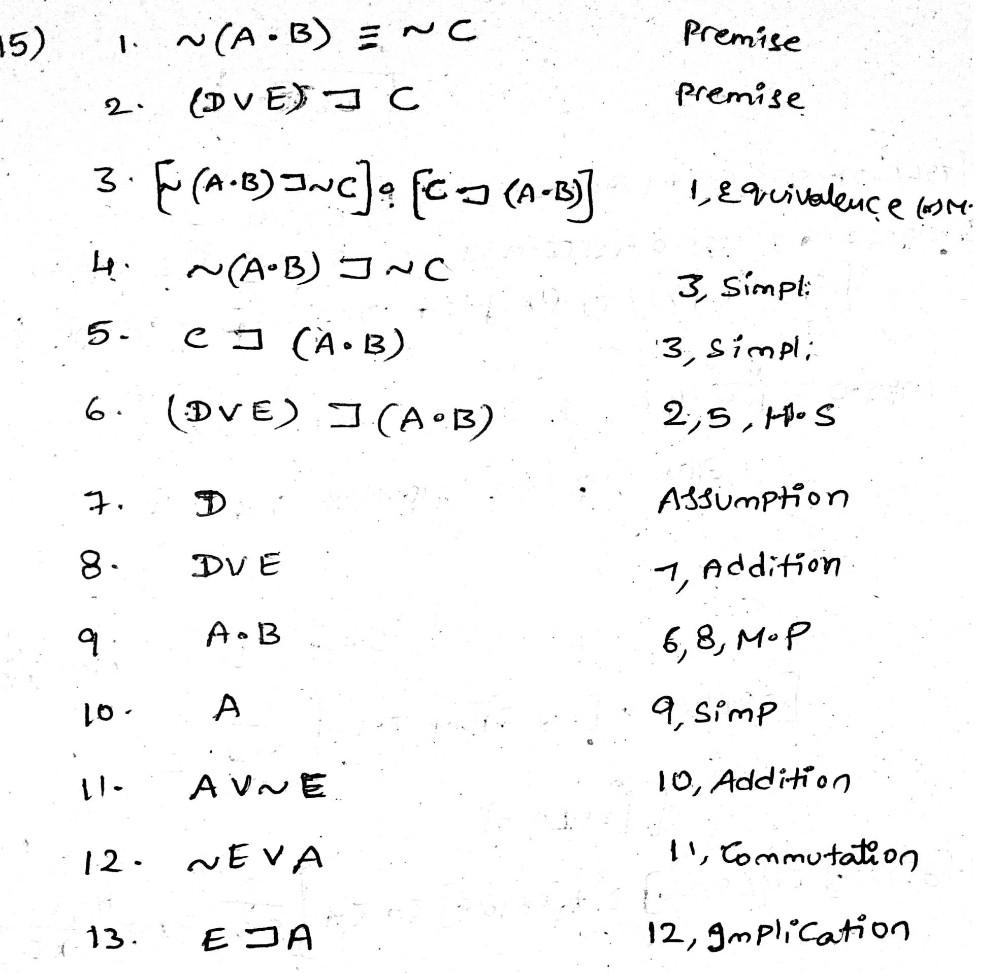 15) 1. ~(A • B) ≡ ~C Premise
2. (D V E) ⊐ C Premise
3. [~(A•B) ⊐ ~C] • [C ⊐ (A•B)] 1, Equivalence
4. ~(A•B) ⊐ ~C 3, Simpl:
5. C ⊐ (A•B) 3, Simpl;
6. (D V E) ⊐ (A•B) 2,5, H•S
7. D Assumption
8. D V E 7, Addition
9. A•B 6,8, M•P
10. A 9, Simp
11. A V ~E 10, Addition
12. ~E V A 11, Commutation
13. E ⊐ A 12, Implication